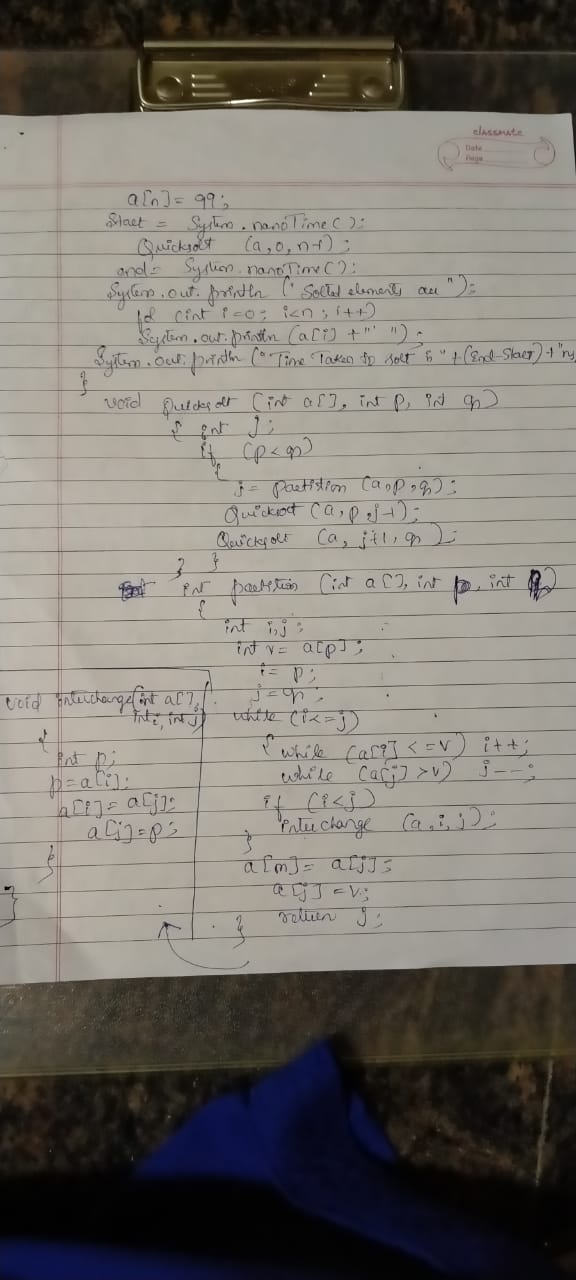 classmate
Date
Page
a[n] = 99;
Start = System.nanoTime();
Quicksort (a, 0, n-1);
end = System.nanoTime();
System.out.println ("Sorted elements are");
for (int i=0; i<n; i++)
System.out.println (a[i] + " ");
System.out.println ("Time Taken to sort is" + (End-Start) + "ns
}
void Quicksort (int a[], int p, int q)
{ int j;
if (p<q)
{
j = partition (a, p, q);
Quicksort (a, p, j-1);
Quicksort (a, j+1, q);
} }
int partition (int a[], int p, int q)
{
int i, j;
int v = a[p];
i = p;
j = q;
while (i<=j)
{ while (a[i] <= v) i++;
while (a[j] > v) j--;
if (i<j)
interchange (a, i, j);
}
a[m] = a[j];
a[j] = v;
return j;
}
void interchange(int a[],
int i, int j)
{
int p;
p = a[i];
a[i] = a[j];
a[j] = p;
}
}